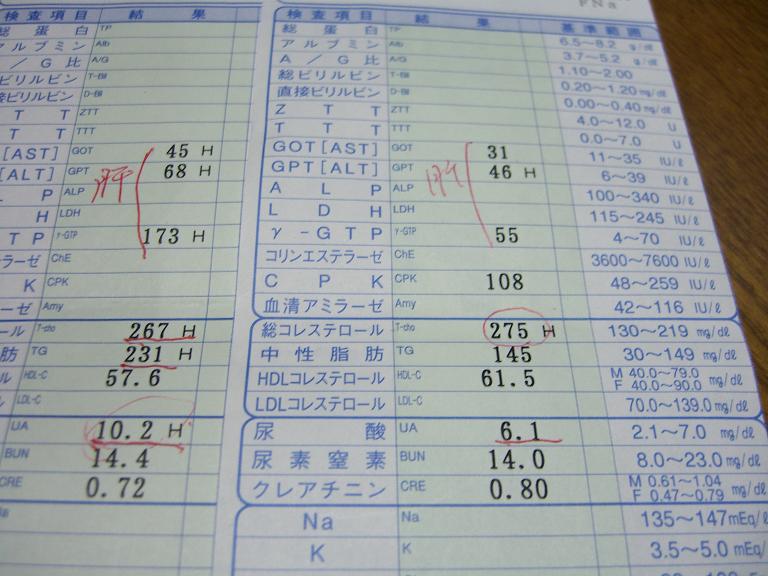 FNa
検査項目 結果
総蛋白 TP
アルブミン Alb
／G比 A/G
ビリルビン T-Bil
接ビリルビン D-Bil
T T ZTT
T T TTT
[AST] GOT 45 H
[ALT] GPT 68 H
肝
P ALP
H LDH
TP γ-GTP 173 H
ラーゼ ChE
K CPK
ーゼ Amy
ール T-cho 267 H
脂肪 TG 231 H
ル HDL-C 57.6
ル LDL-C
UA 10.2 H
BUN 14.4
CRE 0.72
検査項目 結果 基準範囲
総蛋白 TP 6.5～8.2 g/dl
アルブミン Alb 3.7～5.2 g/dl
A／G比 A/G 1.10～2.00
総ビリルビン T-Bil 0.20～1.20 mg/dl
直接ビリルビン D-Bil 0.00～0.40 mg/dl
ZTT ZTT 4.0～12.0 U
TTT TTT 0.0～7.0 U
GOT[AST] GOT 31 11～35 IU/ℓ
GPT[ALT] GPT 46 H 6～39 IU/ℓ
肝
ALP ALP 100～340 IU/ℓ
LDH LDH 115～245 IU/ℓ
γ-GTP γ-GTP 55 4～70 IU/ℓ
コリンエステラーゼ ChE 3600～7600 IU/ℓ
CPK CPK 108 48～259 IU/ℓ
血清アミラーゼ Amy 42～116 IU/ℓ
総コレステロール T-cho 275 H 130～219 mg/dℓ
中性脂肪 TG 145 30～149 mg/dℓ
HDLコレステロール HDL-C 61.5 M 40.0～79.0 F 40.0～90.0 mg/dℓ
LDLコレステロール LDL-C 70.0～139.0 mg/dℓ
尿酸 UA 6.1 2.1～7.0 mg/dℓ
尿素窒素 BUN 14.0 8.0～23.0 mg/dℓ
クレアチニン CRE 0.80 M 0.61～1.04 F 0.47～0.79 mg/dℓ
Na Na 135～147 mEq/ℓ
K K 3.5～5.0 mEq/ℓ